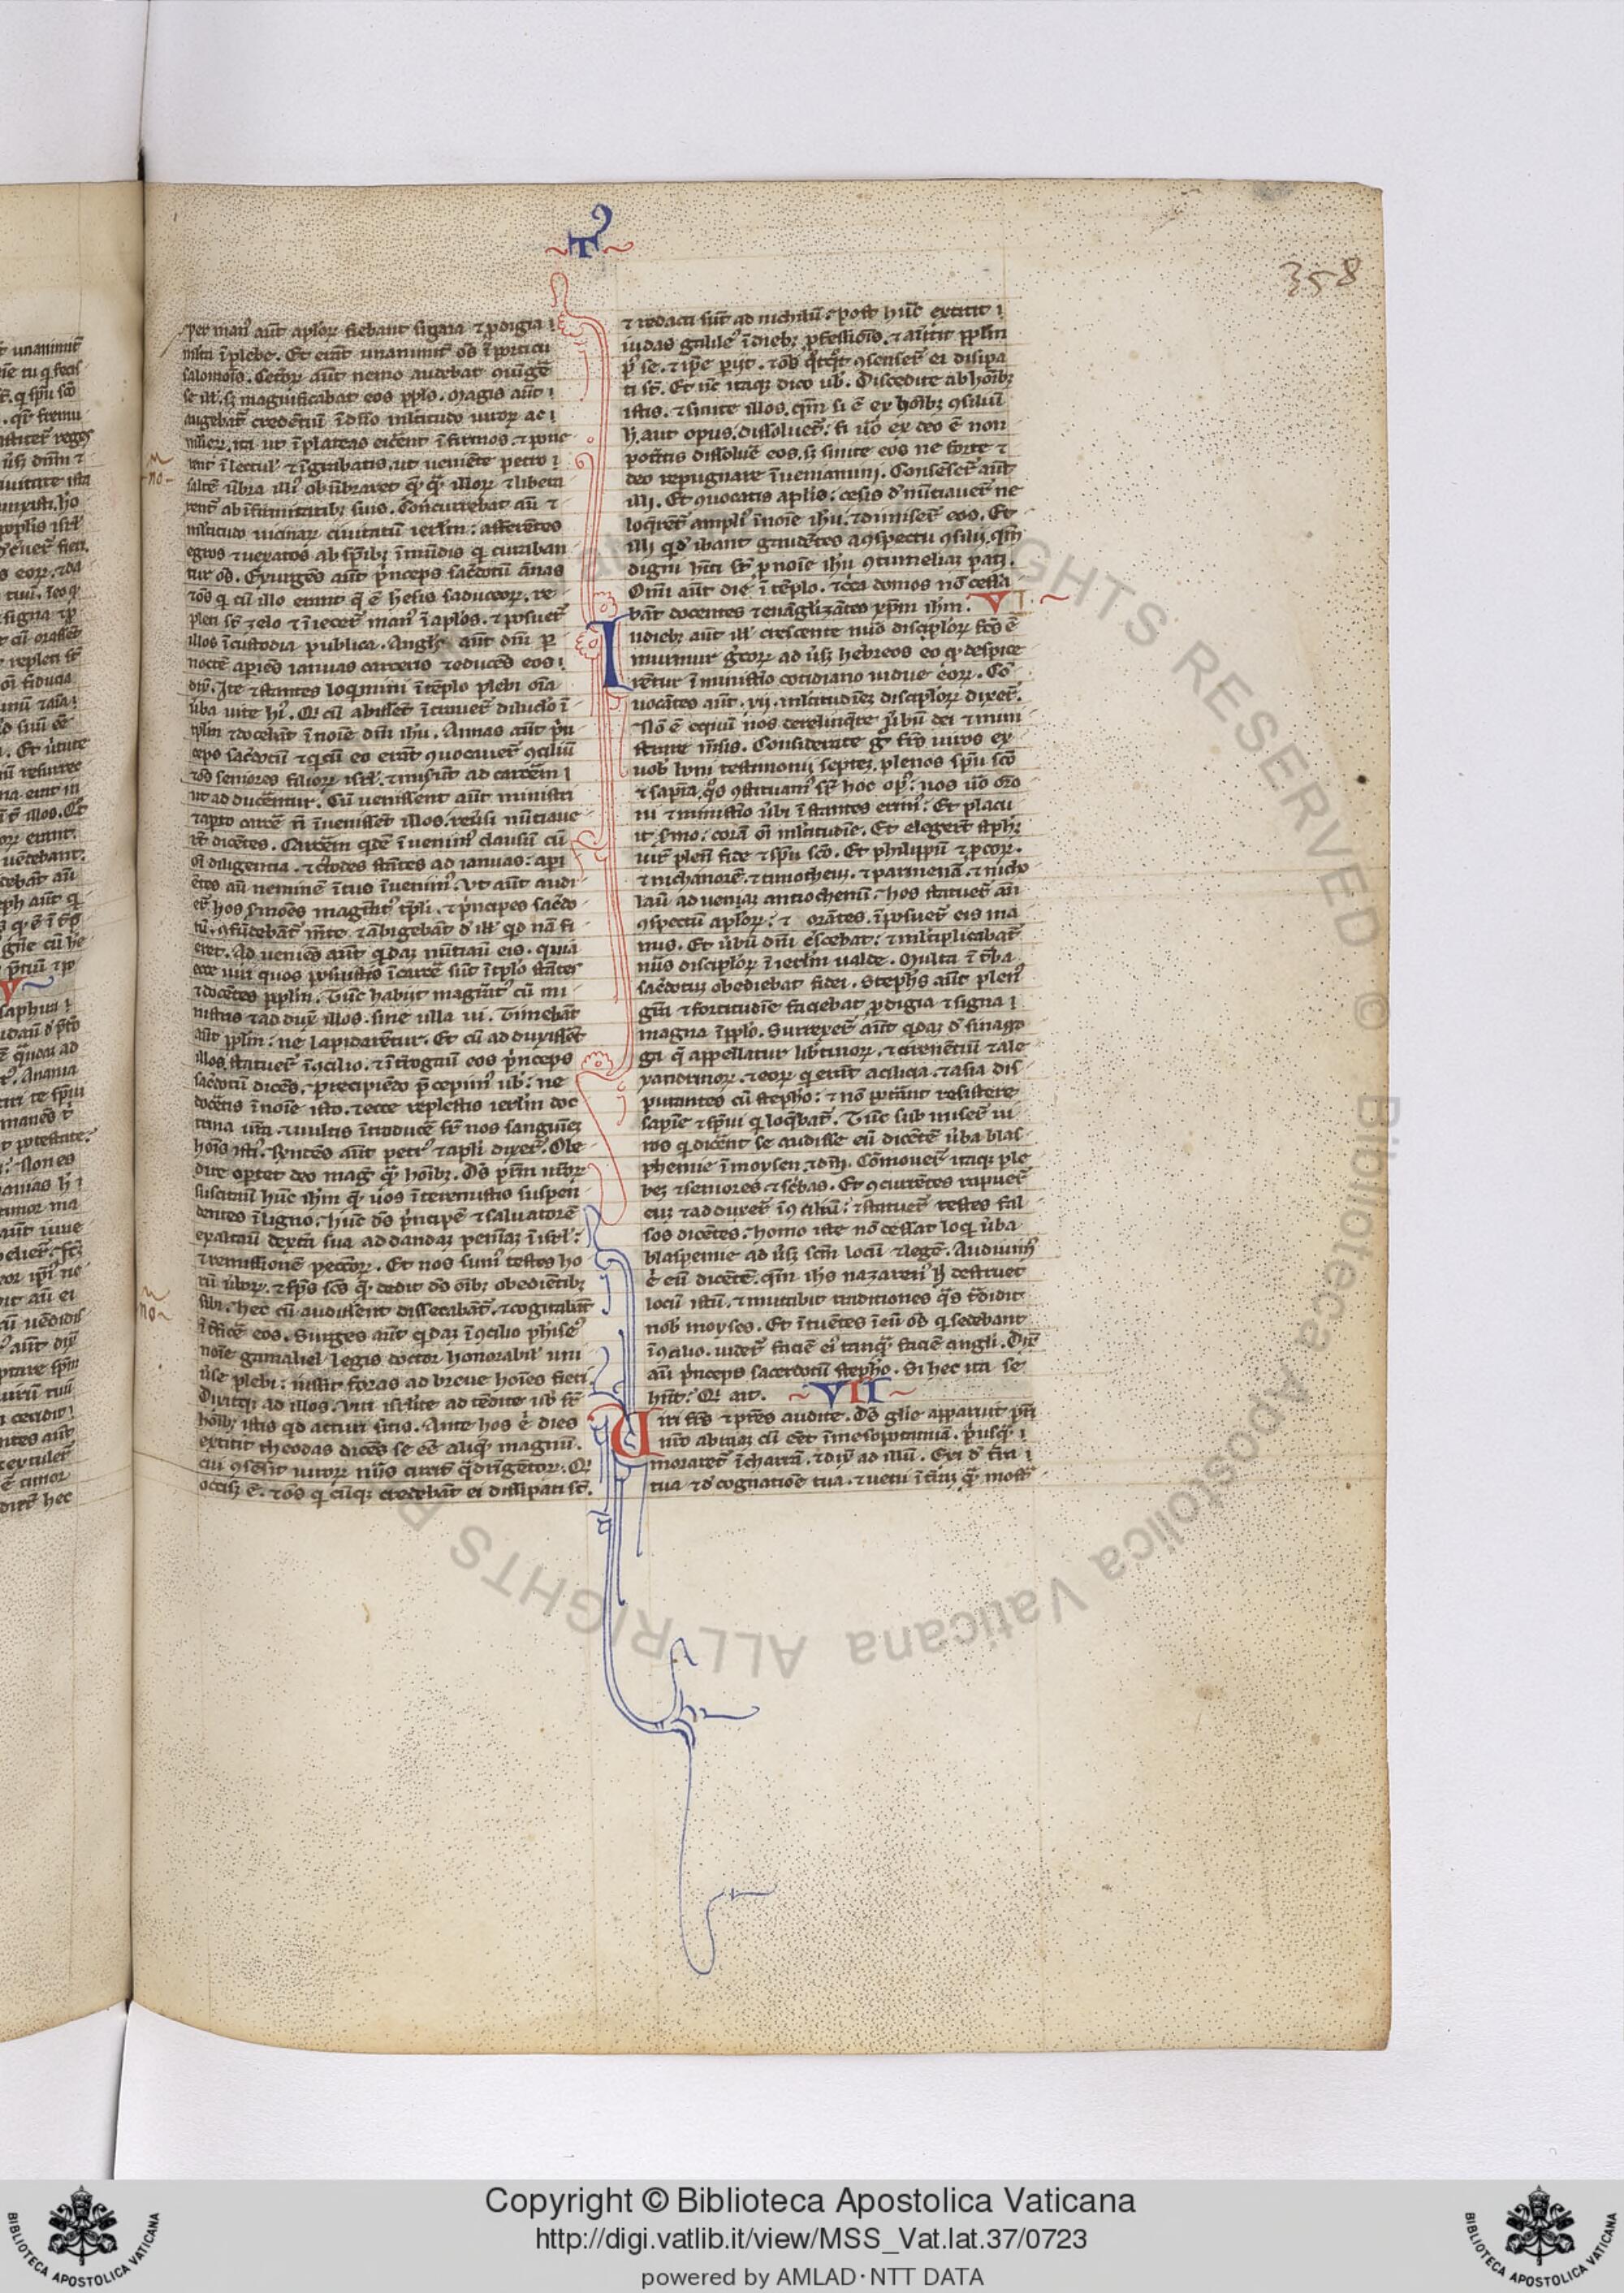 358
per man᷒ aūt aplōꝝ fiebant signa ⁊ ꝓdigia
mīta ī plebe. Et erāt unanimit᷒ oēs ī porticu
salomōis. Cetōꝝ aūt nemo audebat ↄiūge
se ill᷒. sꝫ magnificabat eos ppls. Magis aūt
augebat᷒ credētiū ī dn̄o ml̄titudo uiroꝝ ac
mlieꝝ. ita ut ī plateas eicēnt īfirmos. ⁊ pone
rent ī lectul᷒ ⁊ ī grabatis. ut ueniēte petro
saltē ūbra illi᷒ obūbraret q̄ q̄ illoꝝ ⁊ libera
rent᷒ ab īfirmitatibꝫ suis. Concurrebat aū ⁊
ml̄titudo uicinaꝝ ciuitatū ierl̄m: afferētes
egros ⁊ uexatos ab sp̄ibꝫ īmūdis qͥ curaban
tur oēs. Exurgēs aūt pͥnceps sac̄dotū ānas
⁊ oēs qͥ cū illo erant q̄ ē hesis saduceoꝝ. re
pleti st̄ zelo ⁊ īiecer̄t man᷒ ī aplōs. ⁊ posuer̄t
illos ī custodia publica. Angl᷒s aūt dn̄i ꝑ
noctē apiēs ianuas carceris ⁊ educēs eos
dix̄. Ite ⁊ stantes loqmini ī tēplo plebi oīa
ūba uite hꝰ. Qͥ cū audissēt ītrauer̄t diluclo ī
tplm ⁊ docebāt ī noīe dn̄i ihu. Annas aūt pͥn
ceps sac̄dotū ⁊ qͥ cū eo erāt ↄuocauer̄t ↄciliū
⁊ oēs seniores filioꝝ isrl̄. ⁊ misrūt ad carcēm
ut adducentur. Cū uenissent aūt ministri
⁊ apto carcē n̄ īuenissēt illos. reūsi nūtiaue
rt̄ dicētes. Carcēm qͥdē īuenimꝰ clausū cū
oī diligentia. ⁊ c̄todes stātes ad ianuas: api
ētes aū neminē ītus īuenimꝰ. Ut aūt audi
er̄ hos s̄mōes magr̄at᷒ tp̄li. ⁊ pͥncipes sac̄do
tū. ↄfūdebāt᷒ ⁊ ābigebāt d̄ ill᷒ qd nā fi
eret. Adueniēs aūt qͥdaꝫ nūtiauī eis. quia
ecce uiri quos posuistis ī carcē sūt ī tp̄lo stātes
⁊ docētes ppl̄m. Tūc habijt magr̄at᷒ cū mi
nistris ⁊ adduxꝰ illos. sine ulla ui. Timebāt
aūt ppl̄m: ne lapidarētur. Et cū adduxissēt
illos statuer̄t ī ↄcilio. ⁊ īt̄rogauī eos pͥnceps
sac̄dotū dicēs. precipiēdo p̄cepimꝰ ub᷒: ne
docētis ī noīe isto. ⁊ ecce replestis ierl̄m doc
trina ur̄a. ⁊ uultis īroducē sr̄ nos sanguinē
hoīs istiꝰ. Rn̄dēs aūt petrꝰ ⁊ apl̄i dixer̄t. Obe
dire oꝑtet deo mag᷒ q̄ hoībꝫ. Dš pr̄m nr̄oꝝ
suscitauī hūc ihm q̄ uos ī teremistis suspen
dentes ī ligno. hūc dš pͥncipē ⁊ saluatorē
exaltauī dextā sua ad dandaꝫ penīaꝫ ī isrl̄:
⁊ remissionē peccōꝝ. Et nos sumꝰ testes ho
rū ūboꝝ. ⁊ sp̄s scs q̄ dedit dš oībꝫ obediētibꝫ
sibi. hec cū audissent dissecabāt᷒. ⁊ cogitabāt
īt̄ficē eos. Surgēs aūt qͥdaꝫ ī ↄcilio phiseꝰ
noīe gamaliel legis doctor honorabil᷒ uni
ūse plebi: iussit foras ad breue hoīes fieri.
Dixitqꝫ ad illos. Uiri isrl̄ite adtēdite uob᷒ sr̄
hoībꝫ istis qd acturi sitis. Ante hos ē dies
extitit theodas dicēs se eē aliq̄ magnū.
cui ↄsēsit uiroꝝ nūs circit᷒ q̄dringētoꝝ. Qͥ
occisꝰ ē. ⁊ oēs qͥ cūqꝫ credebāt ei dissipati st̄.
⁊ redacti sūt ad nichilū: post hūc extitit
iudas galileꝰ ī diebꝫ ꝓfessiōis. ⁊ auert̄it ppl̄m
pꝰ se. ⁊ ip̄e periit. ⁊ oēs qͦtqͦt ↄsenser̄t ei disipa
ti st̄. Et nc̄ itaqꝫ dico ub᷒. Discedite ab hoībꝫ
istis. ⁊ sinite illos. qm̄ si ē ex hoībꝫ ↄsiliū
h. aut opus. dissoluet᷒: si uō ex deo ē non
pot̄itis dissoluē eos. sꝫ sinite eos ne forte ⁊
deo repugnare īueniamini. Consēser̄t aūt
illi. Et ↄuocatis aplīs: cesis d̄nūtiauer̄t ne
loqrēt᷒ ampliꝰ ī noīe ihu. ⁊ dimiser̄t eos. Et
illi qͥdē ibant gaudētes a ↄspectu ↄsilij. qm̄
digni hīti st̄ ꝓ noīe ihu ↄtumeliaꝫ pati.
Omī aūt die ī tēplo. ⁊ c̄ca domos nō cessa
bāt docentes ⁊ euāglizātes xp̄m ihm. VI
I n diebꝫ aūt ill᷒ crescente nūo disciploꝝ fcs̄ ē
murmur gͣcoꝝ ad ūsꝫ hebreos eo qꝫ despice
rētur ī ministio cotidiano uidue eoꝝ. Co
uocātes aūt .xij. ml̄titudinē disciploꝝ dixer̄t.
Nō ē equū nos derelinqͣre ūbū dei ⁊ mini
strare mēsis. Considerate gͦ frēs uiros ex
uob᷒ boni testimonij septeꝫ. plenos sp̄u scō
⁊ sapīa. qͦs ↄstituamꝰ sr̄ hoc opꝰ: nos uō orō
ni ⁊ ministio ūbi īstantes erimꝰ: Et placu
it s̄mo: corā oī ml̄titudīe. Et eleger̄t steph᷒:
uir̄ plenū fide ⁊ sp̄u scō. Et philippū ⁊ ꝓcoꝝ.
⁊ nichanorē. ⁊ timotheuꝫ. ⁊ parmenā. ⁊ nicho
laū adueniaꝫ antiochenū: hos statuer̄t an̄
ↄspectū aploꝝ: ⁊ orātes. īposuer̄t eis ma
nus. Et ūbū dn̄i c̄scebat: ⁊ ml̄tiplicabat᷒
nūs disciploꝝ ī ierl̄m ualde. Multa ī t̄ba
sac̄dotuꝫ obediebat fidei. Steph᷒s aūt plenꝰ
gͣtia ⁊ fortitudīe faciebat ꝓdigia ⁊ signa
magna ī pplo. Surrexer̄t aūt qͥdaꝫ d̄ sinago
ga q̄ appellatur lib̄tinoꝝ. ⁊ cirenētiū ⁊ ale
xandrinoꝝ. ⁊ eoꝝ qͥ erāt a cilicia ⁊ asia dis
putantes cū stepho: ⁊ nō potāt resistere
sapīe ⁊ sp̄ui qͥ loq̄bat᷒. Tūc submiser̄t ui
ros qͥ dicēnt se audisse eū dicētē ūba blas
phemie ī moysen ⁊ dm̄. Cōmouer̄t itaqꝫ ple
beꝫ ⁊ seniores ⁊ scͥbas. Et ↄcurrētes rapuer̄t
euꝫ ⁊ adduxer̄t ī ↄciliū: ⁊ statuer̄t testes fal
sos dicētes: homo iste nō cessat loqͥ ūba
blaspemie ad ūsꝫ scm̄ locū ⁊ legē. Audiuimꝰ
ē eū dicētē. qm̄ ihs nazarenꝰ h̄ destruet
locū istū. ⁊ mutabit traditiones qͣs t̄didit
nob᷒ moyses. Et ītuētes ī eū oēs qͥ sedebant
ī ↄcilio. uider̄t faciē eiꝰ tanq̄ faciē angli. Dix̄
aū pͥnceps sacerdotū stepho. Si hec ita se
hn̄t: Qͥ ait. VII
U iri frēs ⁊ pr̄es audite. Dš glīe apparuit pr̄i
nr̄o abraaꝫ cū eēt ī mesopotamia. pͥusq̄
moraret᷒ ī charra. ⁊ dix̄ ad illū. Exi d̄ t̄ra
tua ⁊ d̄ cognatiōe tua. ⁊ ueni ī t̄raꝫ q̄ mōst̄
ALL RIGHTS RESERVED © Biblioteca Apostolica Vaticana
Copyright © Biblioteca Apostolica Vaticana
http://digi.vatlib.it/view/MSS_Vat.lat.37/0723
powered by AMLAD·NTT DATA
BIBLIOTECA APOSTOLICA VATICANA
BIBLIOTECA APOSTOLICA VATICANA